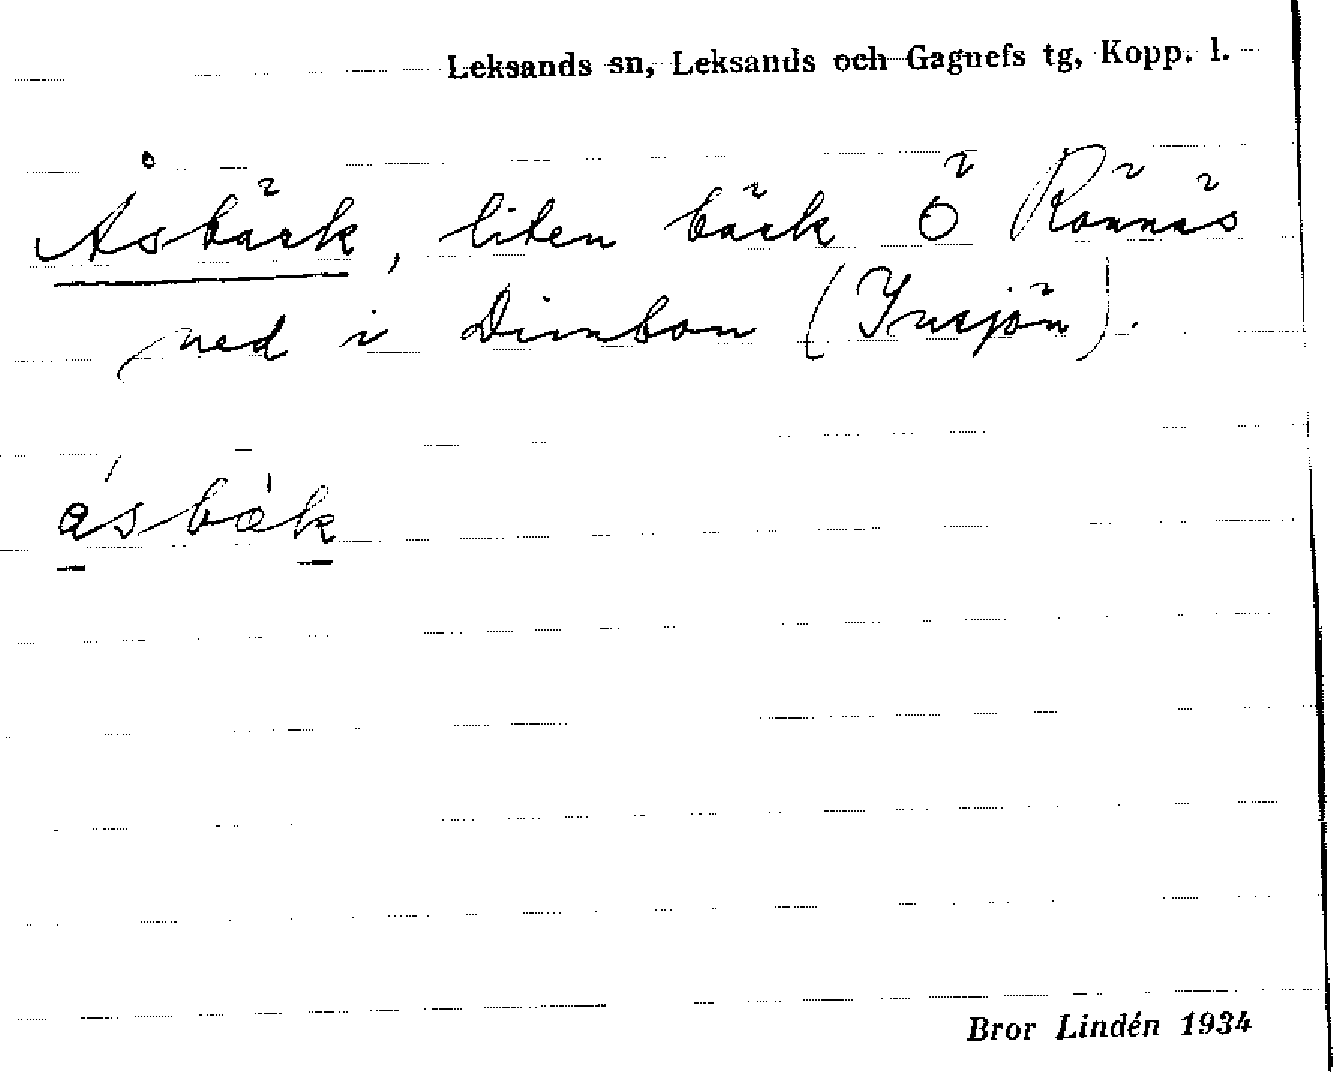 Leksands sn, Leksands och Gagnefs tg, Kopp. l.
Åsbäck, liten bäck Ö Rönnäs
ned i Dimbon (Insjön).
Bror Lindén 1934